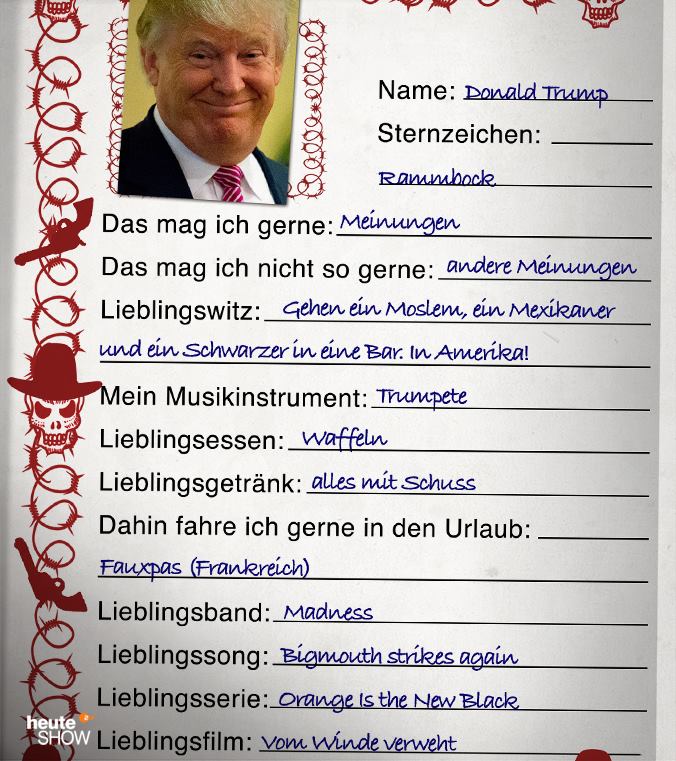 Name: Donald Trump
Sternzeichen:
Rammbock
Das mag ich gerne: Meinungen
Das mag ich nicht so gerne: andere Meinungen
Lieblingswitz: Gehen ein Moslem, ein Mexikaner
und ein Schwarzer in eine Bar. In Amerika!
Mein Musikinstrument: Trumpete
Lieblingsessen: Waffeln
Lieblingsgetränk: alles mit Schuss
Dahin fahre ich gerne in den Urlaub:
Fauxpas (Frankreich)
Lieblingsband: Madness
Lieblingssong: Bigmouth strikes again
Lieblingsserie: Orange Is the New Black
Lieblingsfilm: Vom Winde verweht
heute
SHOW